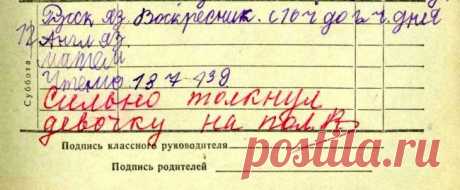 Русск яз. Воскресник. с 10 ч до 2 ч. дня
Англ яз.
матем
Чтение 13 7-938
Суббота
Сильно толкнул
девочку на пол.
Подпись классного руководителя
Подпись родителей
postila.ru